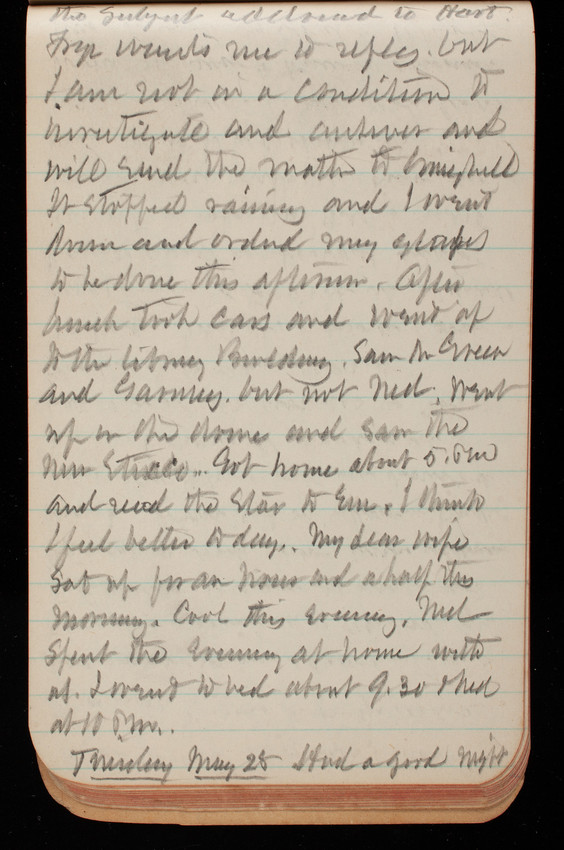 the subject addressed to Hart.
wants me to reply. but
I am not in a condition to
investigate and answer and
will send the matter to
It stopped raining and I went
down and ordered my glasses
to be done this afternoon. After
lunch took cars and went up
to the library Building. Saw Mr Green
and but not Ned. Went
up in the dome and saw the
new Stucco. Got home about 5. P m
and read the Star to Em. I think
I feel better to day. My dear wife
sat up for an hour and a half this
morning. Cool this evening. Ned
spent the evening at home with
us. I went to bed about 9.30 & Ned
at 10 P.m.
Tuesday May 28 Had a good night